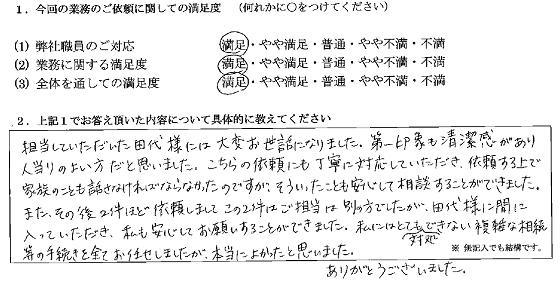 1．今回の業務のご依頼に関しての満足度　（何れかに○をつけてください）
(1) 弊社職員のご対応　満足・やや満足・普通・やや不満・不満
(2) 業務に関する満足度　満足・やや満足・普通・やや不満・不満
(3) 全体を通しての満足度　満足・やや満足・普通・やや不満・不満
2．上記１でお答え頂いた内容について具体的に教えてください
担当していただいた田代様には大変お世話になりました。第一印象も清潔感があり
人当りのよい方だと思いました。こちらの依頼にも丁寧に対応していただき、依頼する上で
家族のことも話さなければならなかったのですが、そういったことも安心して相談することができました。
また、その後２件ほど依頼しまして この２件はご担当は別の方でしたが、田代様に間に
入っていただき、私も安心してお願いすることができました。私にはとても対処できない複雑な相続
等の手続きを全てお任せしましたが、本当によかったと思いました。
※ 無記入でも結構です。
ありがとうございました。